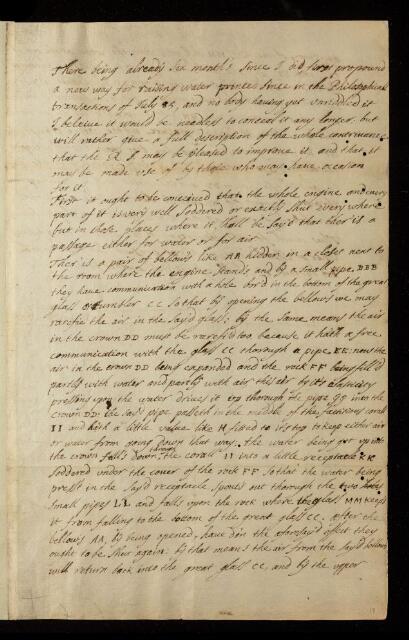 There being already six month's since I did here propound
a new way for raising water printed since in the Philosophical
transactions of July 85, and no body having yet unridled it
I beleive it would be needless to conceal it any longer. but
will rather give a full description of the whole contrivance
that the may be pleased to improve it, and that it
may be made use of by those who may have occasion
for it.
First it ought to be conceived that the whole engine and every
part of it is very well soddered or exactly shut every where
but in those places where it shall be say'd that ther is a
passage either for water or for air
Ther is a pair of bellows like AA hidden in a closet next to
the room where the engine stands and by a small pipe BBB
they have communication with a hole bor'd in the bottom of the great
glass or tumbler CC so that by opening the bellows we may
rarefie the air in the say'd glass: by the same means the air
in the crown DD must be rarefi'd too because it hath a free
communication with the glass CC thorough a pipe EE. now the
air in the crown DD being expanded and the rock FF being fill'd
partly with water and partly with air this air by its elasticity
pressing upon the water drives it up thorough the pipe GG into the
crown DD. the say'd pipe passeth in the middle of the factitious corall
II and hath a little valve like H fixed to its top to keep either air
or water from going down that way. the water being got up into
the crown falls down through the corall II into a little receptacle KK
soddered under the cover of the rock FF. so that the water being
prest in the say'd receptacle spouts out thorough the two
small pipes LL and falls upon the rock where the glass MM keeps
it from falling to the bottom of the great glass CC. after the
bellows AA, by being opened, have don the aforesay'd effect they
ought to be shut again. by that means the air from the say'd bellows
will return back into the great glass CC, and by the upper